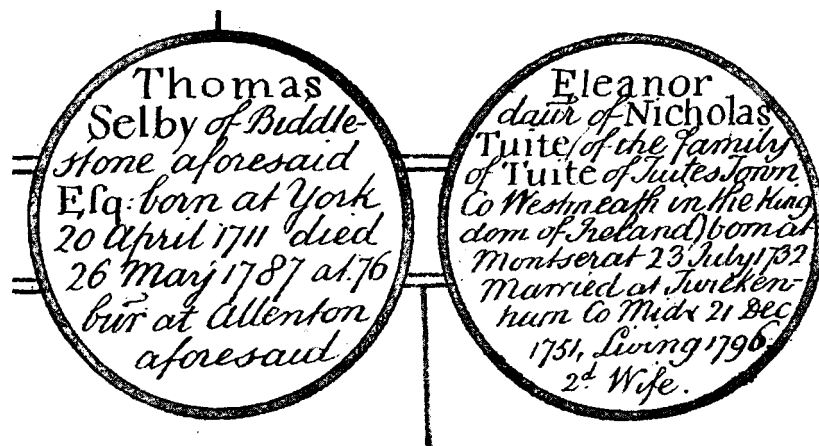 Thomas
Selby of Biddle-
stone aforesaid
Esq: born at York
20 April 1711 died
26 May 1787 at. 76
bur at Allenton
aforesaid
Eleanor
daur of Nicholas
Tuite (of the family
of Tuite of Tuites Town
Co Westmeath in the King
dom of Ireland) born at
Montserat 23 July 1732
Married at Twicken-
ham Co Midx 21 Dec
1751, Living 1796.
2d Wife.